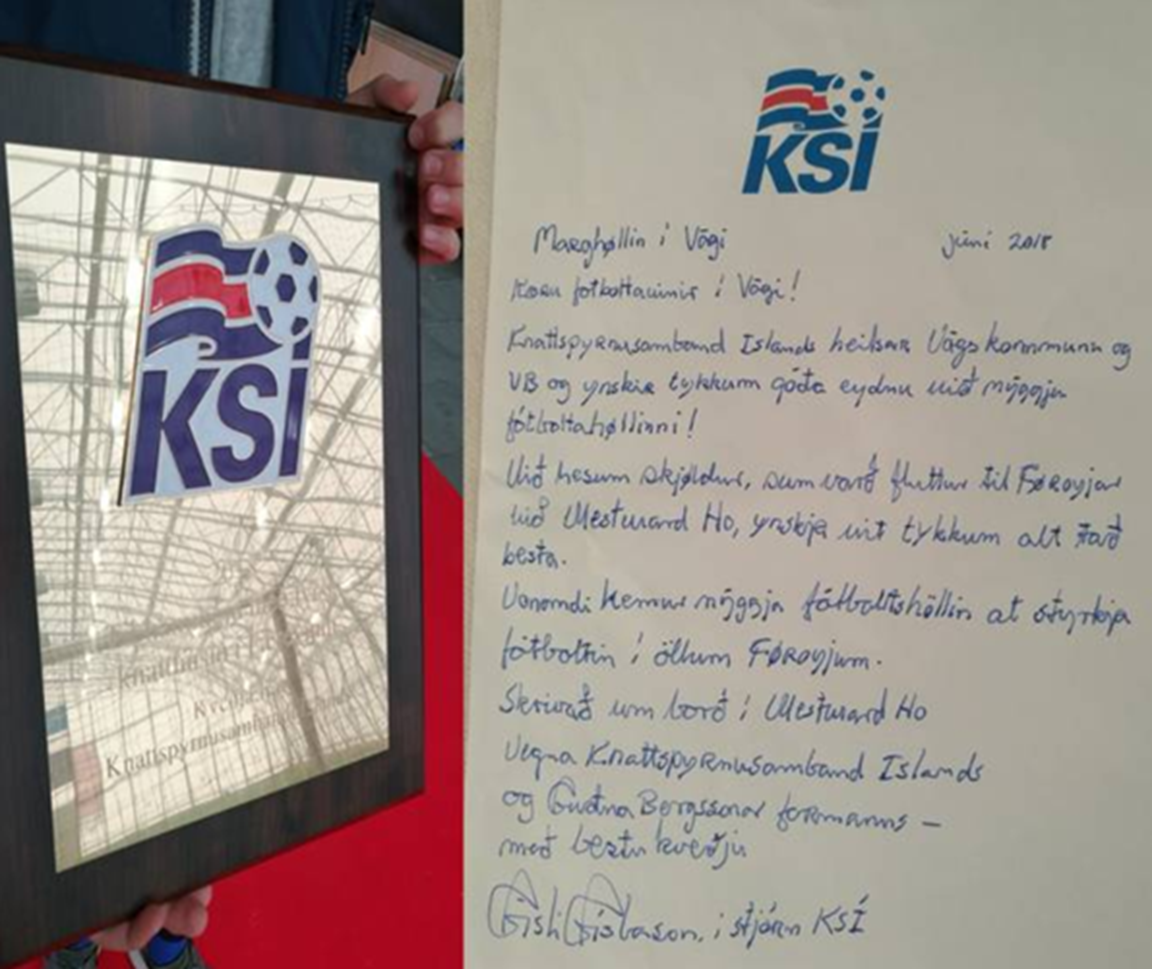 KSÍ
Knattspyrnusamband
KSÍ
Marghøllin í Vági
júní 2018
Kæru fótbóltavinir í Vági!
Knattspyrnusamband Islands heilsar Vágs kommunu og
VB og ynskir tykkum góða eydnu við nýggju
fótbóltahøllinni!
Við hesum skjøldur, sum varð fluttur til Føroyjar
við Westward Ho, ynskja vit tykkum alt tað
besta.
Vónandi kemur nýggja fótbóltshöllin at styrkja
fótbóltin í öllum Føroyjum.
Skrivað um borð í Westward Ho
Vegna Knattspyrnusamband Islands
og Guðna Bergssonar formanns –
með bestu kveðju
Gísli Gíslason, í stjórn KSÍ